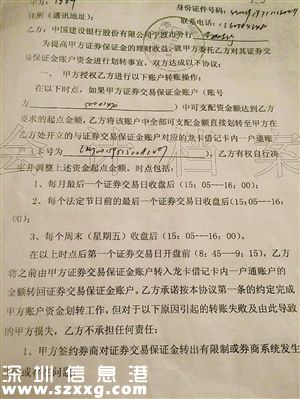 甲方：
住所（通讯地址）：
身份证件号码：
联系电话：
乙方：中国建设银行股份有限公司宁波市分行
为提高甲方证券保证金的理财收益，就甲方委托乙方对其证券
交易保证金账户资金进行划转事宜，双方达成以下协议：
一、甲方授权乙方进行以下账户转账操作：
在以下时点，如果甲方证券交易保证金账户（账号
为）中可支配资金额达到乙方
要求的起点金额，乙方将该账户中全部可支配金额直接划转至甲方在
乙方处开立的与证券交易保证金账户对应的龙卡借记卡内一户通账
户（卡号为），乙方有权自行决
定并调整上述资金起点金额。时点包括：
1、每月最后一个证券交易日收盘后（15：05---16：00）；
2、每个法定节日前的最后一个证券交易日收盘后（15:05---16:
00）；
3、每个周末（星期五）收盘后（15：05---16：00）。
在以上时点后第一个证券交易日开盘前（8：45---9：15），乙方
将之前由甲方证券交易保证金账户转入龙卡借记卡内一户通账户的
金额转回证券交易保证金账户。乙方承诺按本协议第一条的约定完成
甲方账户资金划转工作，但对于以下原因引起的转账失败及由此导致
的甲方损失，乙方不承担任何责任：
1、甲方签约券商对证券交易保证金转出有限制或券商系统发生
深圳信息港
www.szxxg.com